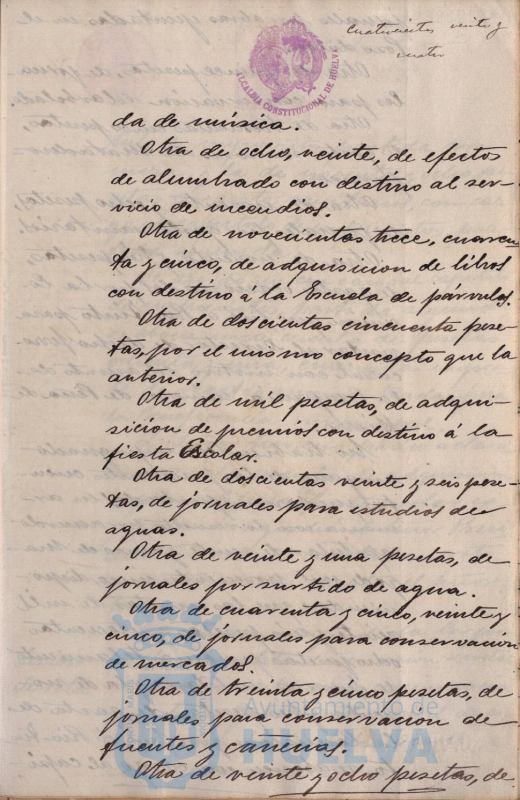 Cuatrocientos veinte y
cuatro
ALCALDIA CONSTITUCIONAL DE HUELVA
da de música.
Otra de ocho, veinte, de efectos
de alumbrado con destino al ser-
vicio de incendios.
Otra de novecientas trece, cuaren
ta y cinco, de adquisicion de libros
con destino á la Escuela de párvulos.
Otra de doscientas cincuenta pese-
tas, por el mismo concepto que la
anterior.
Otra de mil pesetas, de adqui-
sicion de premios con destino á la
fiesta Escolar.
Otra de doscientas veinte y seis pese-
tas, de jornales para estudios de
aguas.
Otra de veinte y una pesetas, de
jornales por surtido de agua.
Otra de cuarenta y cinco, veinte y
cinco, de jornales para conservación
de mercados.
Otra de treinta y cinco pesetas, de
jornales para conservacion de
fuentes y cañerias.
Otra de veinte y ocho pesetas, de
Ayuntamiento de
HUELVA